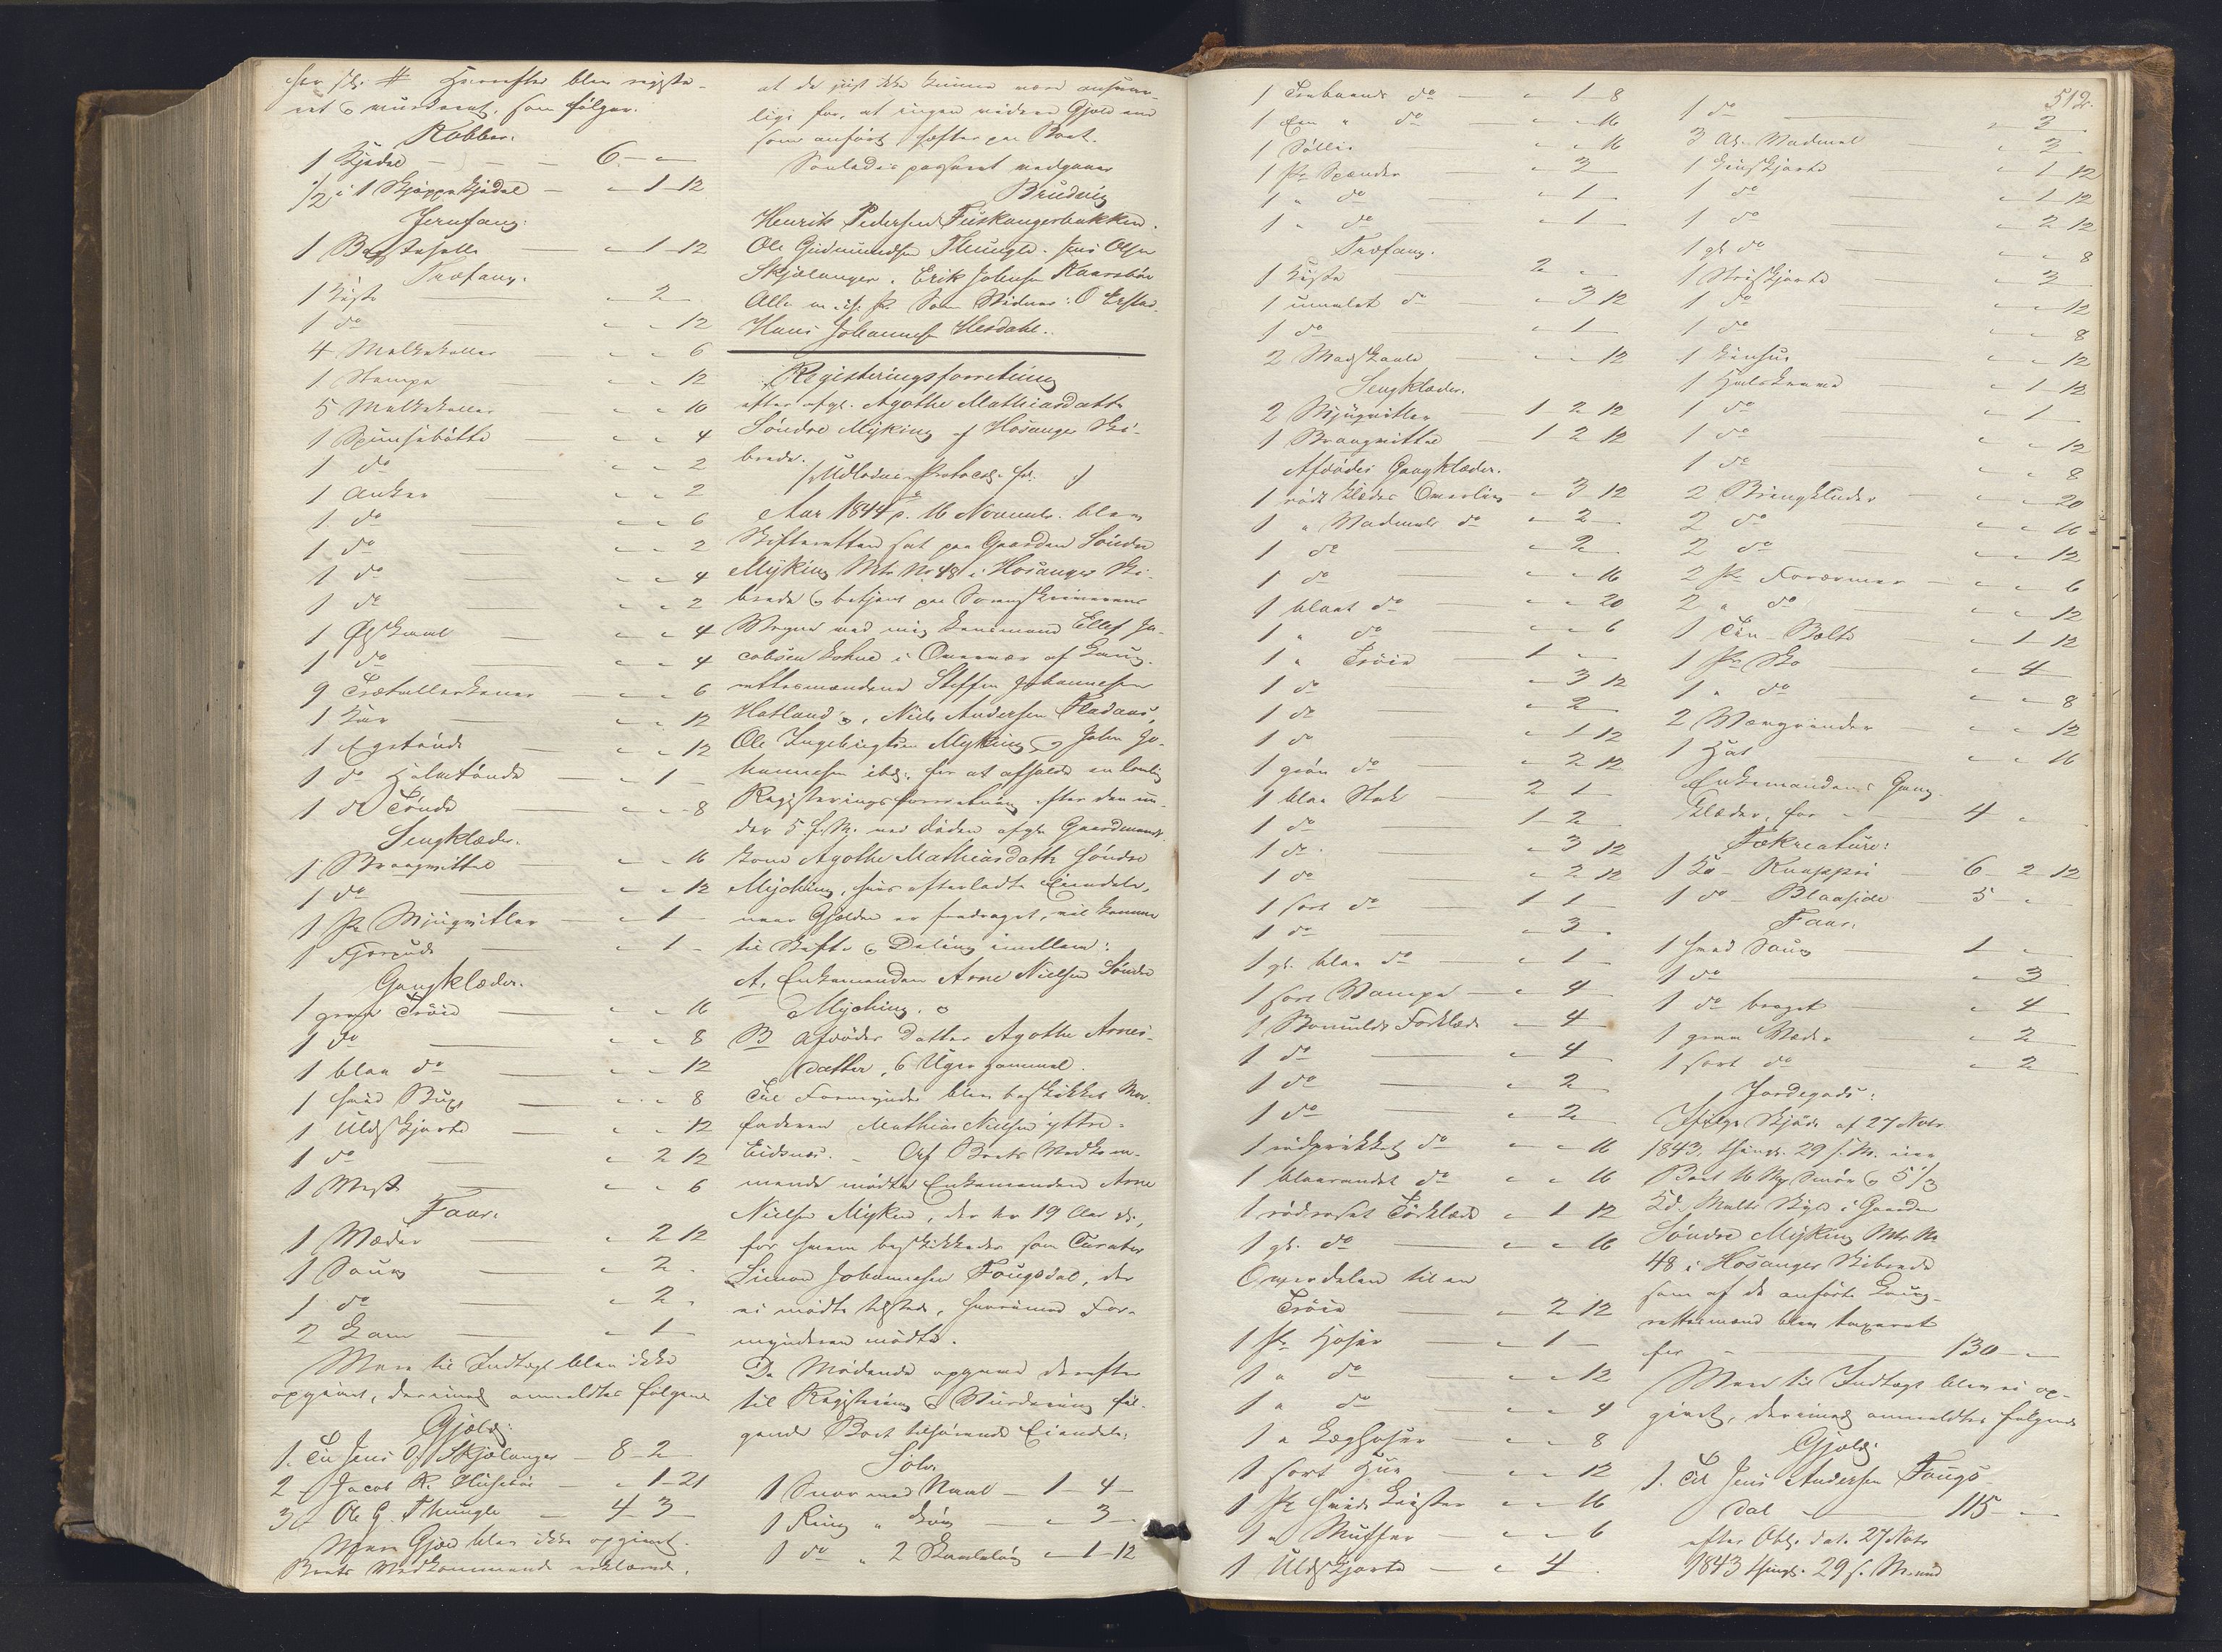 Herefter blev registe-
ret & vurderet, som følger.
Kobber.
1 Kjedel — 6 - -
1/2 i 1 Skjeppekjedel — - 1 12
Jernfang.
1 - 1 12
Træfang.
1 Kiste - 2 -
1 do - - 12
4 Melkekoller - - 6
1 Stampe - - 12
5 Melkekoller - - 10
1 - - 4
1 do - - 2
1 Anker - - 2
1 do - - 6
1 do - - 2
1 do - - 4
1 do - - 2
1 Ølskaal - - 4
1 do - - 4
9 Trætallerkener - - 6
1 Kar - - 12
1 Egetønde - - 12
1 do Halvtønde - 1 -
1 do Tønde - - 8
Sengklæder.
1 Braagvittel - - 16
1 do - - 12
1 Pr - 1 -
1 - 1 -
Gangklæder.
1 grøn Trøie - - 16
1 do - - 8
1 blaa do - - 12
1 hvid Bux - - 8
1 Uldskjorte - - 12
1 do - 2 12
1 Vest - - 6
Faar.
1 Væder - 2 12
1 Saug - 2 -
1 do - 2 -
2 Lam - 1 -
Mere til Indtægt blev ikke
opgivet, derimod anmeldtes følgende
Gjeld:
1. Til Jens O. Skjelanger — 8 - 2 -
2 - Jacob R. Husebøe - 1 - 21
3 - Ole G. Thungle - 4 3 -
Mere Gjeld blev ikke opgivet.
Boets Vedkommende erklærede,
at de just ikke kunne være ansvar-
lige for, at ingen videre Gjeld end
som anført hefter paa Boet.
Saaledes passeret vedgaaer
Brudvig
Henrik Pedersen Fuskangerbakken.
Ole Gudmundsen Thungle. Jens Olsen
Skjelanger. Erik Johnsen Kaarsbøe
Alle m. i. P. Som Vidner: O
Hans Johannes Hesdahl.
Registeringsforretning
efter afgl. Agothe Mathiasdatter
Søndre Myking af Hosanger Ski-
brede.
(Udlodnes Protocol. fol. )
Aar 1844 d. 16 Novembr. blev
Skifteretten sat paa Gaarden Søndre
Myking Mtr No 48 i Hosanger Ski-
brede & betjent paa Sorenskriverens
Vegne ved mig Lensmand Ellef Ja-
cobsen Hohne i Overvær af Laug-
rettesmændene Steffen Johannesen
Hatland, Niels Andersen Fladaas,
Ole Ingebrigtsen Myking & John Jo-
hannesen ibd, for at afholde en lovlig
Registeringsforretning efter den un-
der 5 f. M. ved Døden afgl. Gaardmands
Kone Agothe Mathiasdatter Søndre
Myching, hvis efterladte Eiendele,
naar Gjelden er fradraget, vil komme
til Skifte & Deling imellem:
A, Enkemanden Arne Nielsen Søndre
Myching. &
B Afdødes Datter Agothe Arnes-
datter, 6 Uger gammel.
Til Formynder blev beskikket Mor-
faderen Mathias Nielsen yttre-
Eidsnæs. — Af Boets Vedkom-
mende mødte Enkemanden Arne
Nielsen Myken, der er 19 Aar gl.,
for hvem beskikkedes som Curator
Simon Johannesen Fougsdal, der
ei mødte tilstede, hvorimod For-
mynderen mødte.
De Mødende opgave derefter
til Registering & Vurdering føl-
gende Boet tilhørende Eiendele:
Sølv.
1 Snor med Naal — 1 - 4 -
1 Ring " Løv - 3 -
1 do " 2 - 1 12
512.
1 do - 1 8
1 do - - 16
1 Søllie - - 16
1 Pr Spænder - 3 -
1 " do - 1 -
1 " do - 1 -
Træfang.
1 Kiste 2 - -
1 umalet do - 3 12
1 do - 1 -
2 Madskaale - - 12
Sengklæder.
2 1 2 12
1 Braagvittel 1 2 12
Afdødes Gangklæder.
1 rødt Klædes Overliv - 3 12
1 " Vadmels do - 2 -
1 do - 2 -
1 do - - 16
1 blaat do - - 20
1 " do - - 6
1 " Trøie 1 - -
1 do - 3 12
1 do - 2 -
1 do - 1 12
1 grøn do - 2 12
1 blaa Stak 2 1 -
1 do 1 2 -
1 do - 3 12
1 do - 2 12
1 sort do 1 1 -
1 do - 3 -
1 gl. blaa do - 1 -
1 sort Vampe - 4 -
1 Bomulds Forklæde - 4 -
1 do - 4 -
1 do - 2 -
1 do - 2 -
1 rødprikket do - - 16
1 blaarandet do - - 16
1 rødroset Tørklæde - 1 12
1 gl. do - - 16
Overdelen til en
Trøie - 2 12
1 Pr Hoser - 1 -
1 " do - - 12
1 " do - - 4
1 " Læghoser - - 8
1 sort Hue - - 12
1 Pr hvide - - 16
1 " Muffer - - 6
1 Uldskjorte - 4 -
1 do - 2 -
3 Al. Vadmel - 2 -
1 Linskjorte - 1 12
1 do - 1 12
1 do - 2 12
1 gl do - - 8
1 Striskjorte - 3 -
1 do - - 12
1 do - - 8
1 Linhue - - 12
1 Halskrave - 1 12
1 do - 1 -
1 do - - 12
1 do - - 8
2 Bringkluder - - 20
2 do - - 16
2 do - - 12
2 Pr Forærmer - - 6
2 " do - - 12
1 Tin-Bælte - 1 12
1 Pr Sko - 4 -
1 " do - - 8
2 - - 12
1 Hat - - 16
Enkemandens Gang-
klæder, for — 4 - -
Fækreature:
1 Ko - Knappei 6 2 12
1 do - Blaaside 5 - -
Faar.
1 hvid Saug 1 - -
1 do - 3 -
1 do braaget - 4 -
1 graa Væder - 2 -
1 sort do - 2 -
Jordegods:
Ifølge Skjøde af 27 Novbr
1843, thingl. 29 s. M. eier
Boet 16 Mkr Smør & 5 1/3
Kd. Malts Skyld i Gaarden
Søndre Myking Mtr No
48 i Hosanger Skibrede
som af de anførte Laug-
rettesmænd blev taxeret
for — 130 - -
Mere til Indtægt blev ei op-
givet, derimod anmeldtes følgende
Gjeld:
1. Til Jens Andersen Fougs-
dal — 115 - -
efter Obl. dat. 27 Novbr
1843 thingl. 29 s. M. med